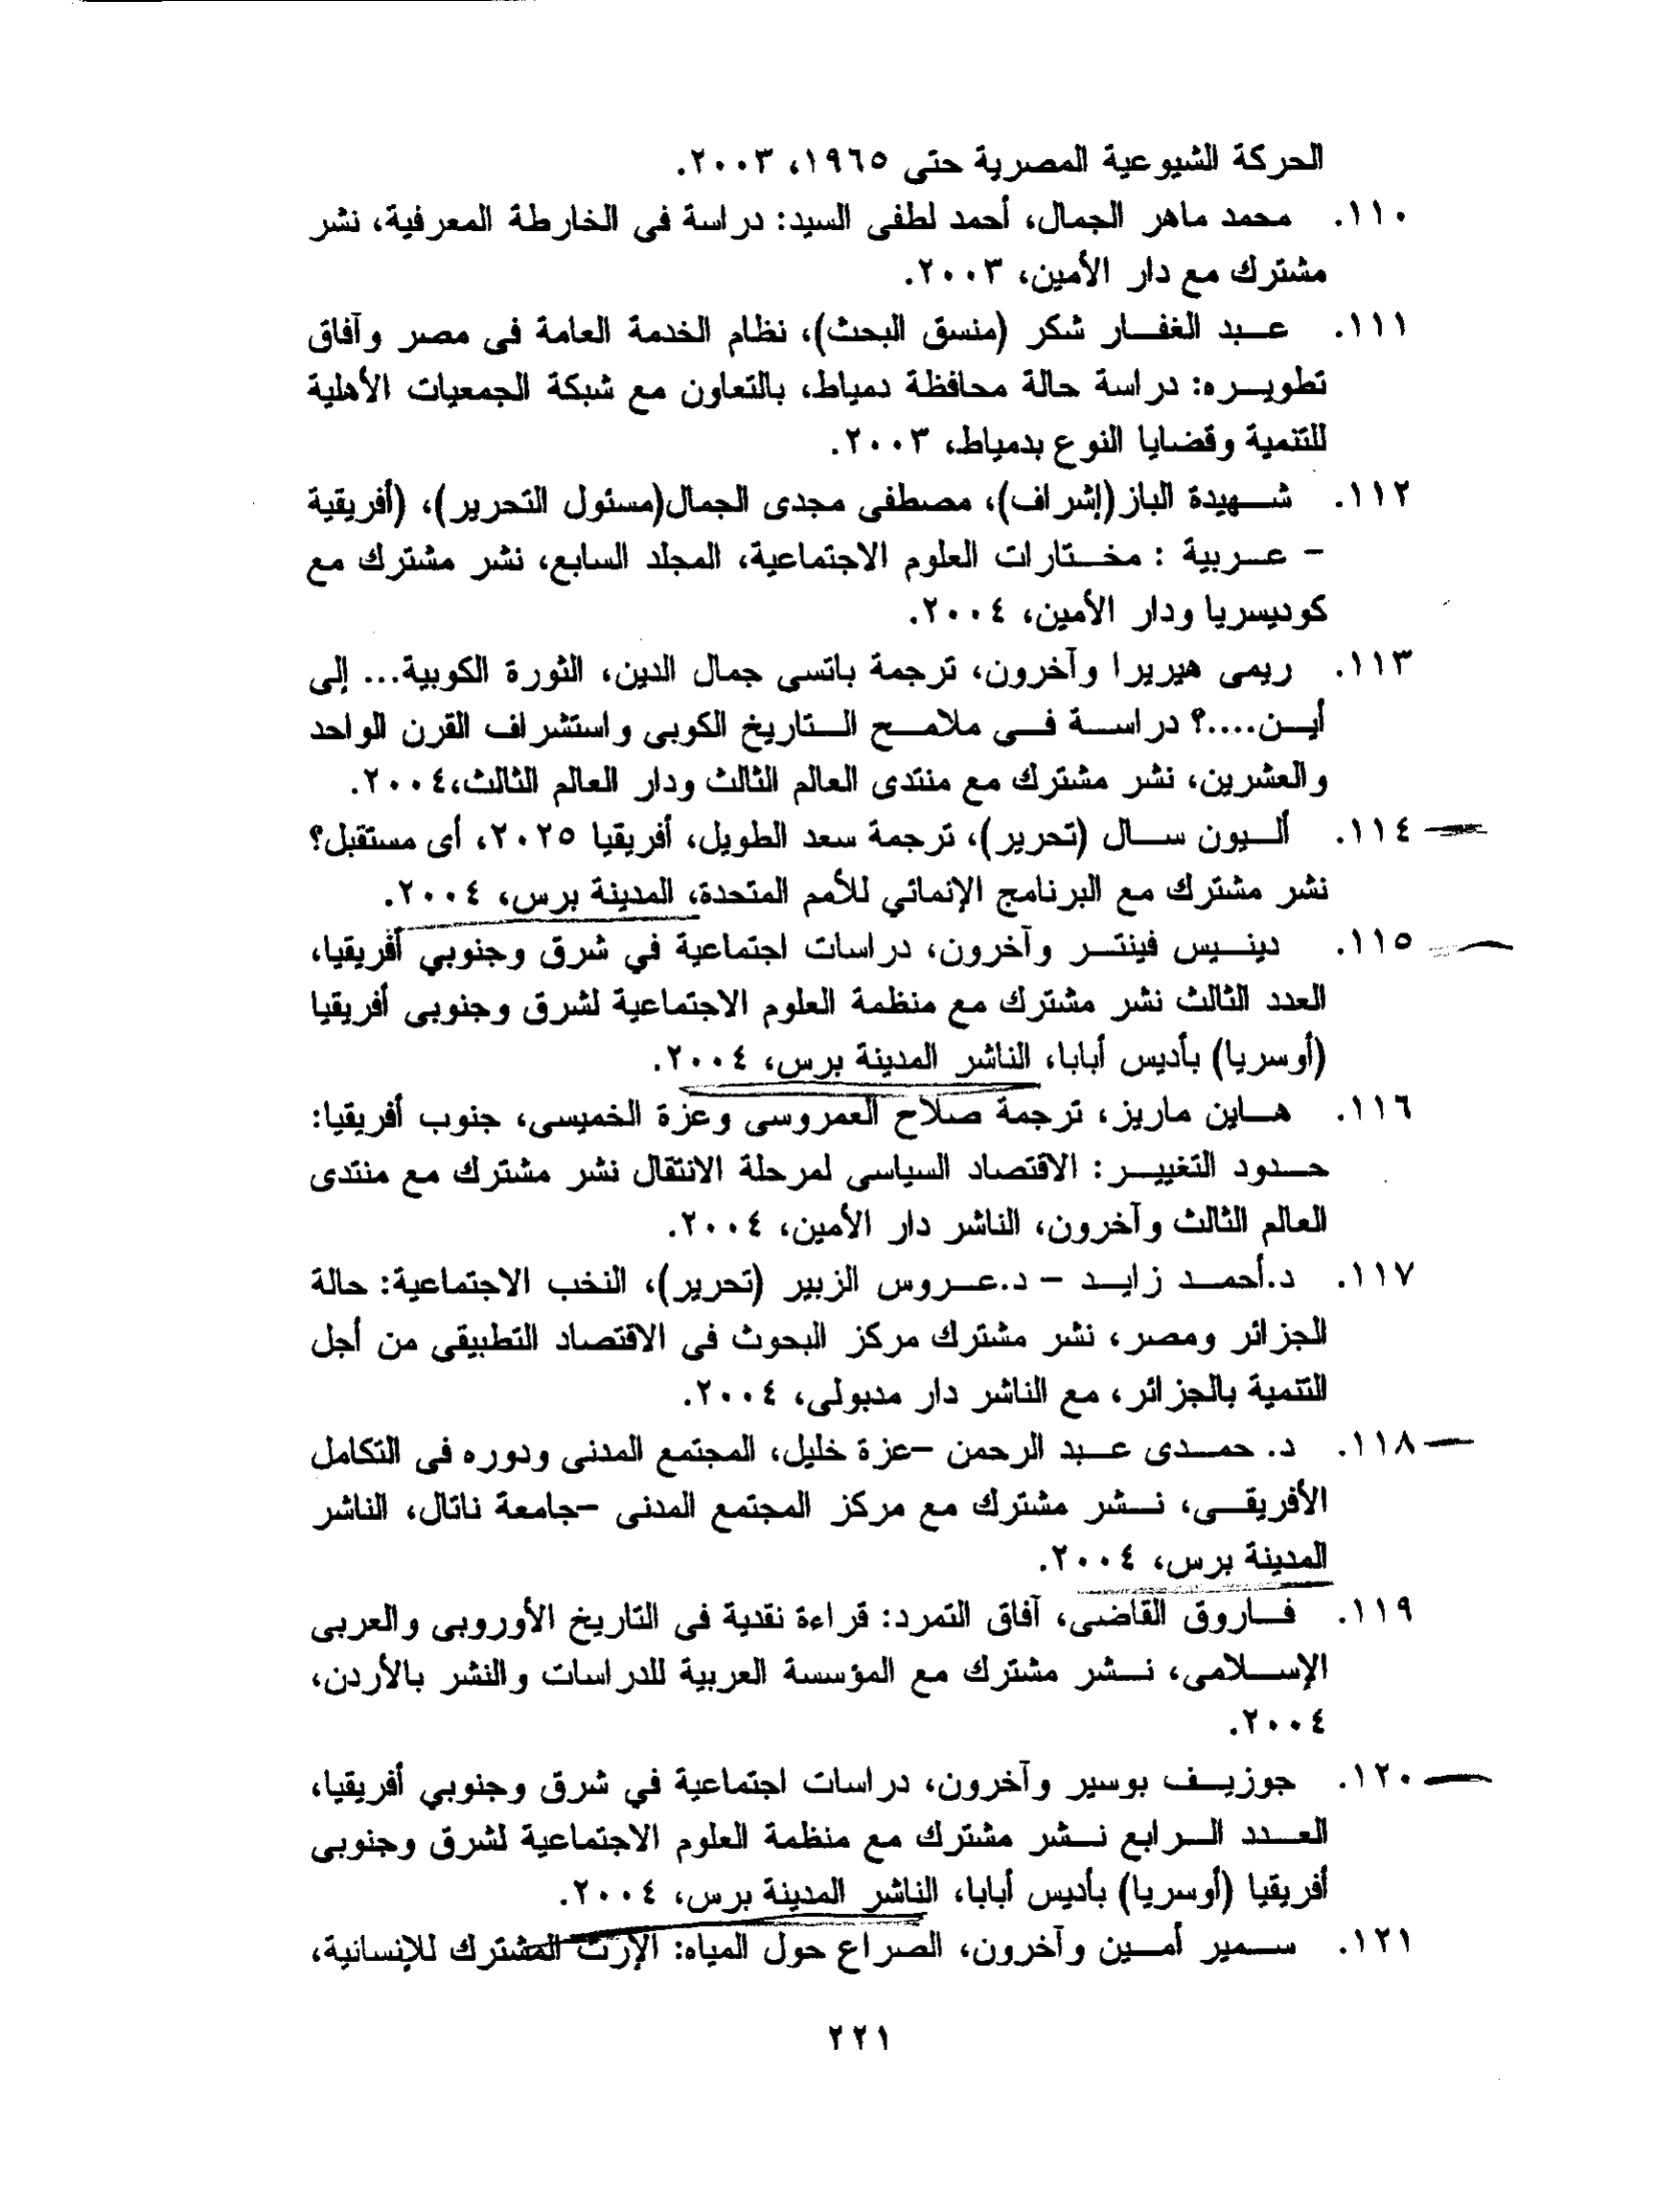 الحركة الشيوعية المصرية حتى ١٩٦٥، ٢٠٠٣.
١١٠. محمد ماهر الجمال، أحمد لطفى السيد: دراسة فى الخارطة المعرفية، نشر
مشترك مع دار الأمين، ٢٠٠٣.
١١١. عبد الغفار شكر (منسق البحث)، نظام الخدمة العامة فى مصر وآفاق
تطويره: دراسة حالة محافظة دمياط، بالتعاون مع شبكة الجمعيات الأهلية
للتنمية وقضايا النوع بدمياط، ٢٠٠٣.
١١٢. شهيدة الباز(إشراف)، مصطفى مجدى الجمال(مسئول التحرير)، (أفريقية
– عربية : مختارات العلوم الاجتماعية، المجلد السابع، نشر مشترك مع
كوديسريا ودار الأمين، ٢٠٠٤.
١١٣. ريمى هيريرا وآخرون، ترجمة باتسى جمال الدين، الثورة الكوبية... إلى
أين....؟ دراسة فى ملامح التاريخ الكوبى واستشراف القرن الواحد
والعشرين، نشر مشترك مع منتدى العالم الثالث ودار العالم الثالث،٢٠٠٤.
١١٤. أليون سال (تحرير)، ترجمة سعد الطويل، أفريقيا ٢٠٢٥، أى مستقبل؟
نشر مشترك مع البرنامج الإنمائي للأمم المتحدة، المدينة برس، ٢٠٠٤.
١١٥. دينيس فينتر وآخرون، دراسات اجتماعية في شرق وجنوبي أفريقيا،
العدد الثالث نشر مشترك مع منظمة العلوم الاجتماعية لشرق وجنوبى أفريقيا
(أوسريا) بأديس أبابا، الناشر المدينة برس، ٢٠٠٤.
١١٦. هاين ماريز، ترجمة صلاح العمروسى وعزة الخميسى، جنوب أفريقيا:
حدود التغيير: الاقتصاد السياسى لمرحلة الانتقال نشر مشترك مع منتدى
العالم الثالث وآخرون، الناشر دار الأمين، ٢٠٠٤.
١١٧. د.أحمد زايد – د.عروس الزبير (تحرير)، النخب الاجتماعية: حالة
الجزائر ومصر، نشر مشترك مركز البحوث فى الاقتصاد التطبيقى من أجل
التنمية بالجزائر، مع الناشر دار مدبولى، ٢٠٠٤.
١١٨. د. حمدى عبد الرحمن –عزة خليل، المجتمع المدنى ودوره فى التكامل
الأفريقى، نشر مشترك مع مركز المجتمع المدنى –جامعة ناتال، الناشر
المدينة برس، ٢٠٠٤.
١١٩. فاروق القاضى، آفاق التمرد: قراءة نقدية فى التاريخ الأوروبى والعربى
الإسلامى، نشر مشترك مع المؤسسة العربية للدراسات والنشر بالأردن،
٢٠٠٤.
١٢٠. جوزيف بوسير وآخرون، دراسات اجتماعية في شرق وجنوبي أفريقيا،
العدد الرابع نشر مشترك مع منظمة العلوم الاجتماعية لشرق وجنوبى
أفريقيا (أوسريا) بأديس أبابا، الناشر المدينة برس، ٢٠٠٤.
١٢١. سمير أمين وآخرون، الصراع حول المياه: الإرث المشترك للإنسانية،
٢٢١